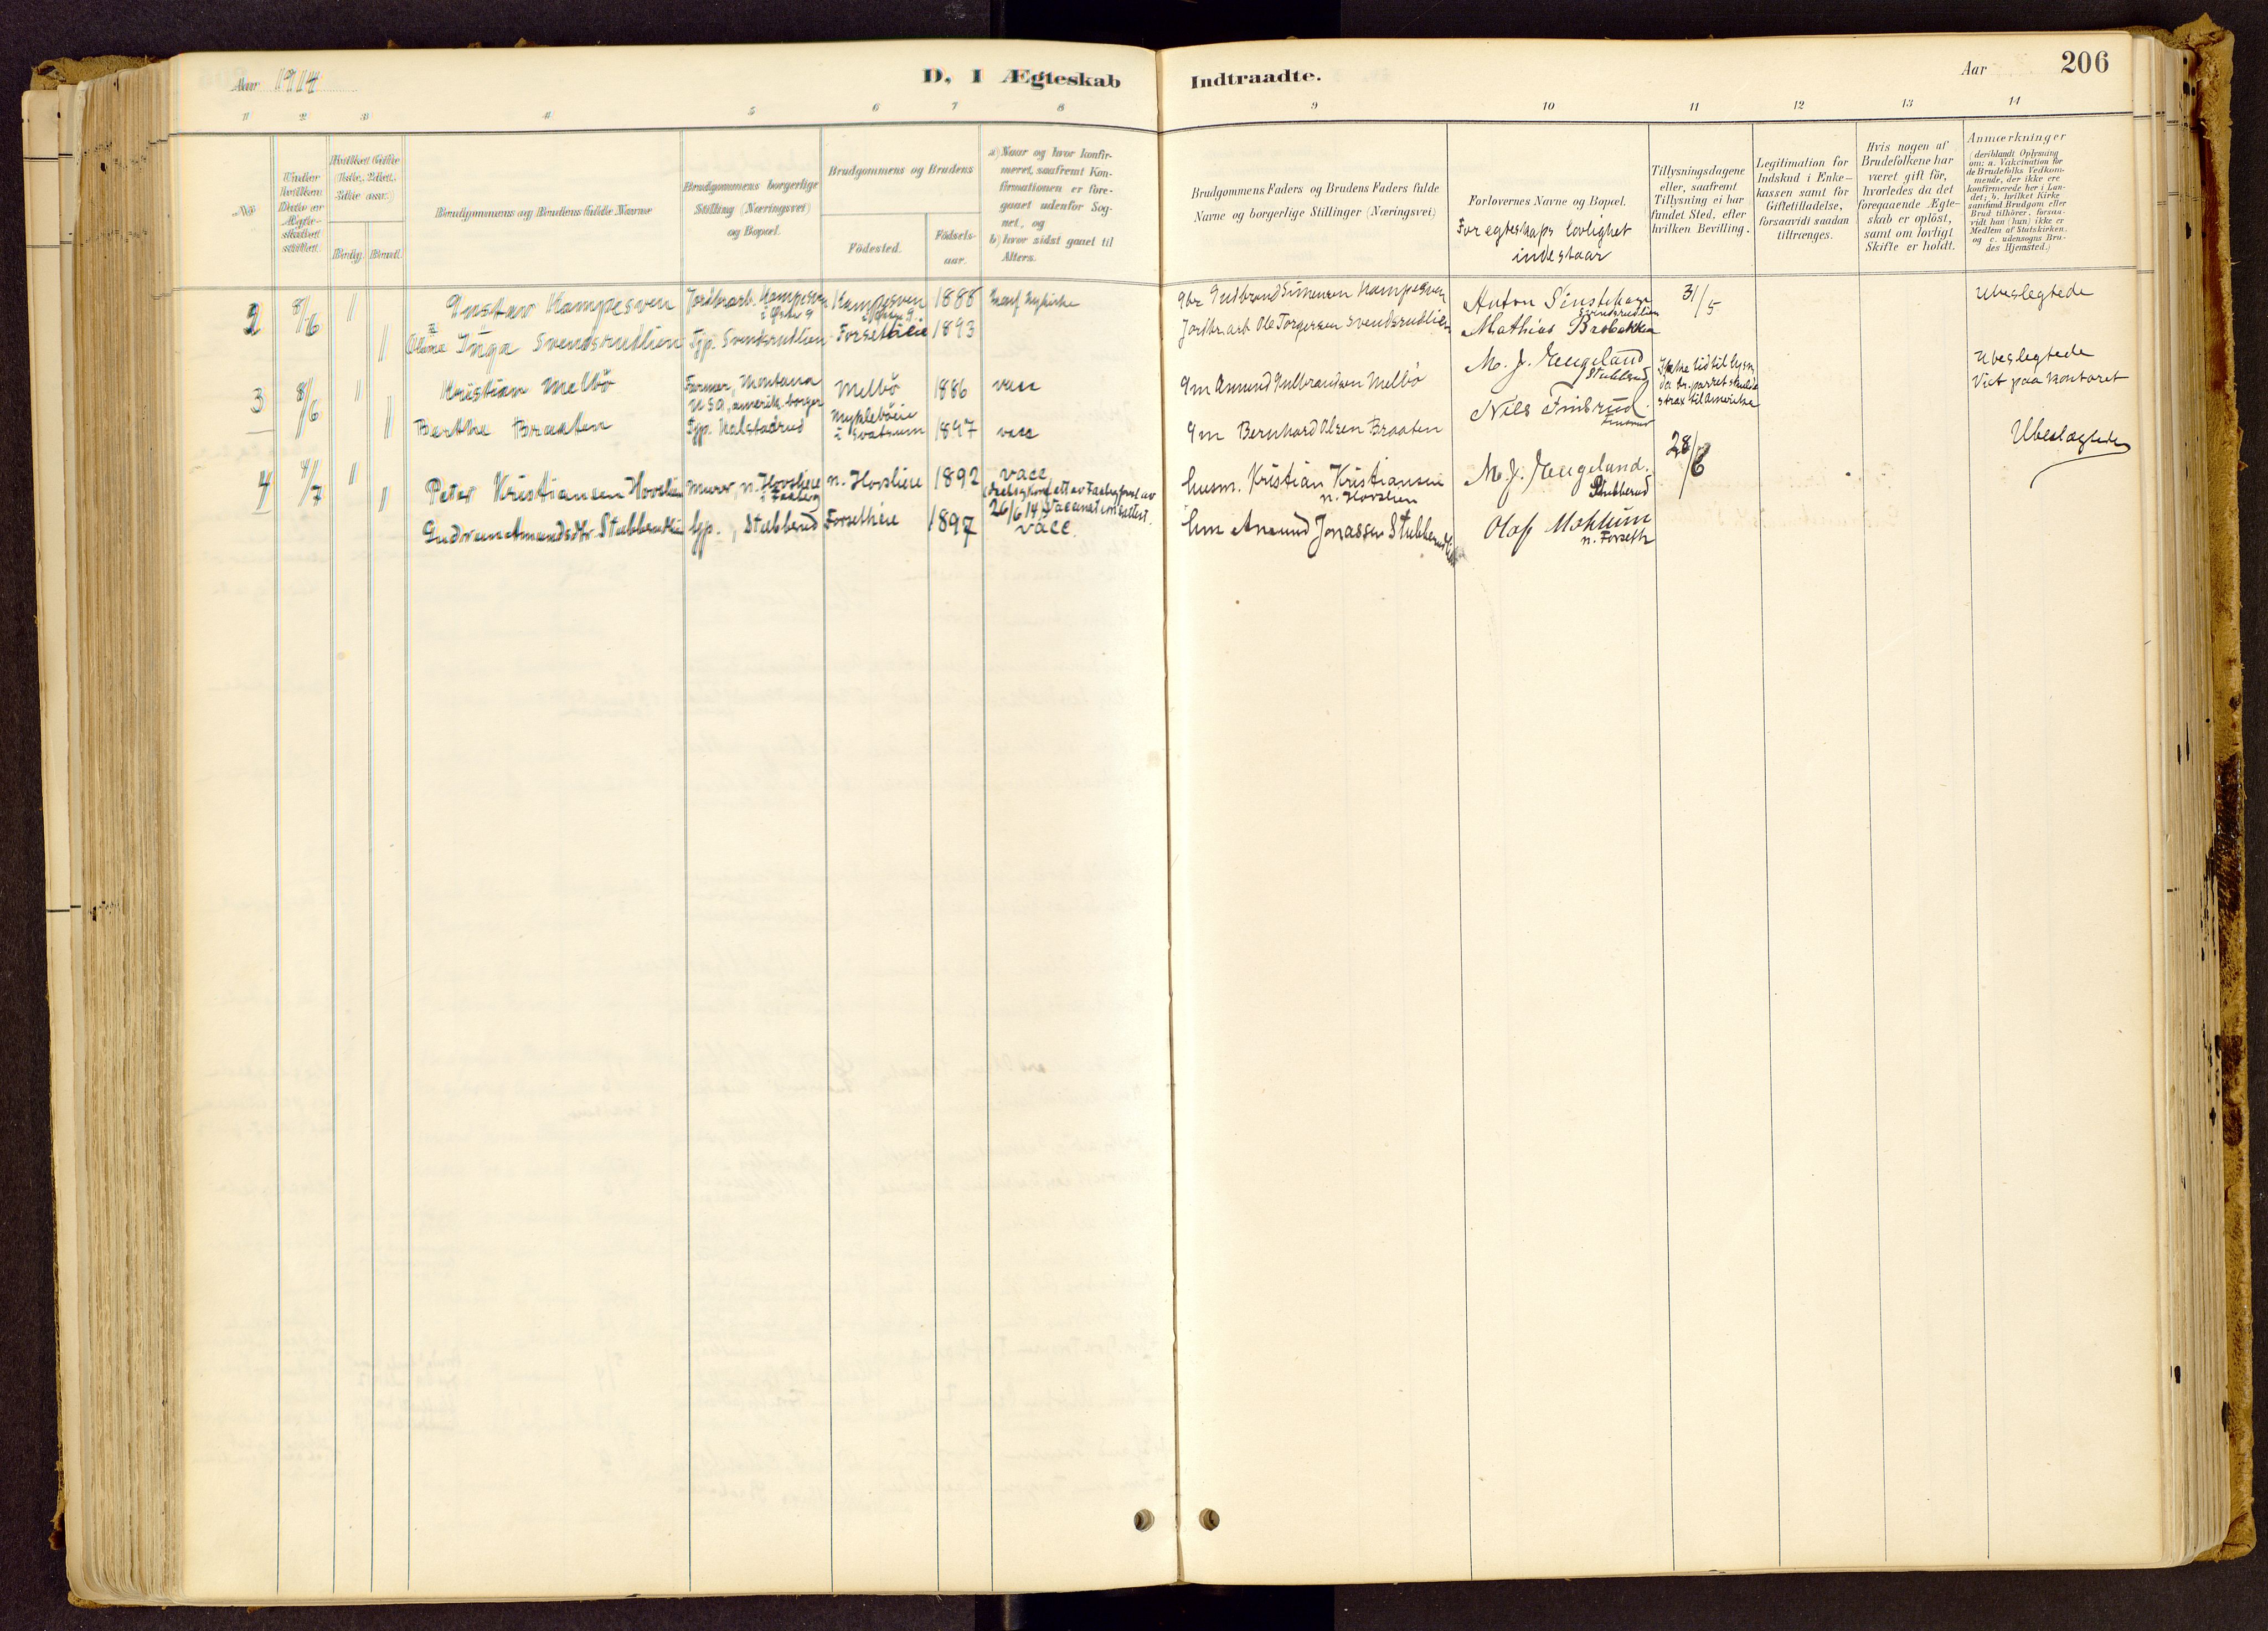 Aar 1914
D, I Ægteskab
Indtraadte.
Aar
206
1 2 3 4 5 6 7 8
9 10 11 12 13 14
No
Brudgommens og Brudens fulde Navne
Brudg. Brud.
Brudgommens borgerlige
Stilling (Næringsvei)
og Bopæl.
Brudgommens og Brudens
Födested.
Födsels-
aar.
a) Naar og hvor konfir-
meret, saafremt Kon-
firmationen er fore-
gaaet udenfor Sog-
net, og
b) hvor sidst gaaet til
Alters.
Brudgommens Faders og Brudens Faders fulde
Navne og borgerlige Stillinger (Næringsvei)
Forlovernes Navne og Bopæl.
For egteskaps lovlighet
indestaar
Tillysningsdagene
eller, saafremt
Tillysning ei har
fundet Sted, efter
hvilken Bevilling.
Legitimation for
Indskud i Enke-
kassen samt for
Giftetilladelse,
forsaavidt saadan
tiltrænges.
Hvis nogen af
Brudefolkene har
været gift för,
hvorledes da det
foregaaende Ægte-
skab er oplöst,
samt om lovligt
Skifte er holdt.
Anmærkninger
(deriblandt Oplysning
om: a. Vakcination for
de Brudefolks Vedkom-
mende, der ikke ere
konfirmerede her i Lan-
det; b. hvilket Kirke-
samfund Brudgom eller
Brud tilhörer, forsaa-
vidt han (hun) ikke er
Medlem af Statskirken,
og c. udensogns Bru-
des Hjemsted.)
2 8/6 Gustav Kampesven Jordbrarb. Kampesven Kampesven 1888
Gbr Gudbrand Simensen Kampesven Anton Sinstehagen 31/5 Ubeslegtede
Svendsrudlien
Olina Inga Svendsrudlien Tjp. Svendsrudlien Forsethøeie 1893
Jordbr.arb Ole Torgersen Svendsrudlien Mathias Brobakken
3 8/6 Kristian Melbö Farmer, Montana Melbö 1886 vacc
USA, amerik. borger
Gm Amund Gulbrandsen Melbö M. J. Heugeland
Stubberud
Ikke tid til lysn.
da br.parret skulde
strax til Amerika
Ubeslegtede
Viet paa kontoret
Berthe Braaten Tjp. Kalstadrud Mykleböeie
i Svatsum 1897 vacc
Gm Bernhard Olsen Braaten Nils Finsrud
Finsrud
4 4/7 Peter Kristiansen Hovslien murer, n. Hovsliere
i Faaberg n. Hovsliere 1892 vacc
26/6 14
Husm. Kristian Kristiansen
n. Hovslien
M. J. Heugeland.
Stubberud
28/6
Ubeslægtede
Gudrun Amundsdtr. Stubberudlien tjp., Stubberud Forsetheie 1897 vacc.
hm Amund Jonassen Stubberudlien Olaf Moklum
n. Forseth